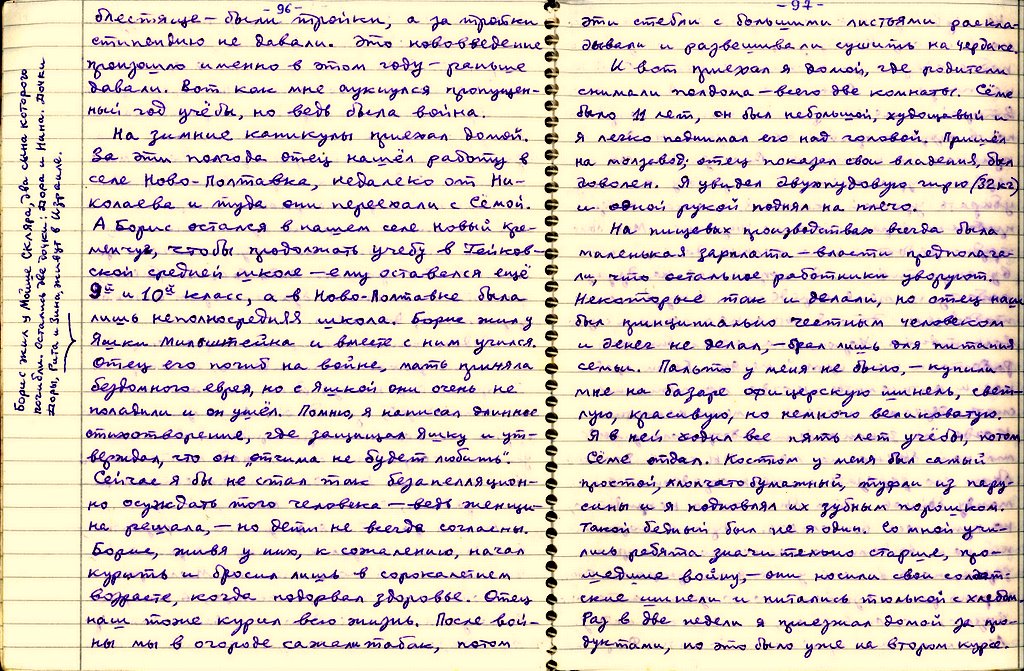 -96-
блестяще – были тройки, а за тройки
стипендию не давали. Это нововведение
произошло именно в этом году – раньше
давали. Вот как мне аукнулся пропущен-
ный год учёбы, но ведь была война.
На зимние каникулы приехал домой.
За эти полгода отец нашёл работу в
селе Ново-Полтавка, недалеко от Ни-
колаева и туда они переехали с Сёмой.
А Борис остался в нашем селе Новый Кре-
менчуг, чтобы продолжать учёбу в Гейков-
ской средней школе – ему оставался ещё
9й и 10й класс, а в Ново-Полтавке была
лишь неполносредняя школа. Борис жил у
Яшки Мильштейна и вместе с ним учился.
Отец его погиб на войне, мать приняла
бездомного еврея, но с Яшкой они очень не
поладили и он ушёл. Помню, я написал длинное
стихотворение, где защищал Яшку и ут-
верждал, что он „отчима не будет любить".
Сейчас я бы не стал так безапелляцион-
но осуждать того человека – ведь женщи-
на решала, – но дети не всегда согласны.
Борис, живя у них, к сожалению, начал
курить и бросил лишь в сорокалетнем
возрасте, когда подорвал здоровье. Отец
наш тоже курил всю жизнь. После вой-
ны мы в огороде сажали табак, потом
Борис жил у Мойше Скляра, два сына которого
погибли. Остались две дочки: Дора и Нина. Дочки
Доры, Рита и Зина, живут в Израиле.
-97-
эти стебли с большими листьями раскла-
дывали и развешивали сушить на чердаке.
И вот приехал я домой, где родители
снимали полдома – всего две комнаты. Сёме
было 11 лет, он был небольшой, худощавый и
я легко поднимал его над головой. Пришёл
на молзавод; отец показал свои владения, был
доволен. Я увидел двухпудовую гирю (32 кг)
и одной рукой поднял на плечо.
На пищевых производствах всегда была
маленькая зарплата – власти предполага-
ли, что остальное работники уворуют.
Некоторые так и делали, но отец наш
был принципиально честным человеком
и денег не делал, – брал лишь для питания
семьи. Пальто у меня не было, – купили
мне на базаре офицерскую шинель, свет-
лую, красивую, но немного великоватую.
Я в ней ходил все пять лет учёбы, потом
Сёме отдал. Костюм у меня был самый
простой, хлопчатобумажный, туфли из пару-
сины и я подновлял их зубным порошком.
Такой бедный был не я один. Со мной учи-
лись ребята значительно старше, про-
шедшие войну, – они носили свои солдат-
ские шинели и питались тюлькой с хлебом.
Раз в две недели я приезжал домой за про-
дуктами, но это было уже на втором курсе.